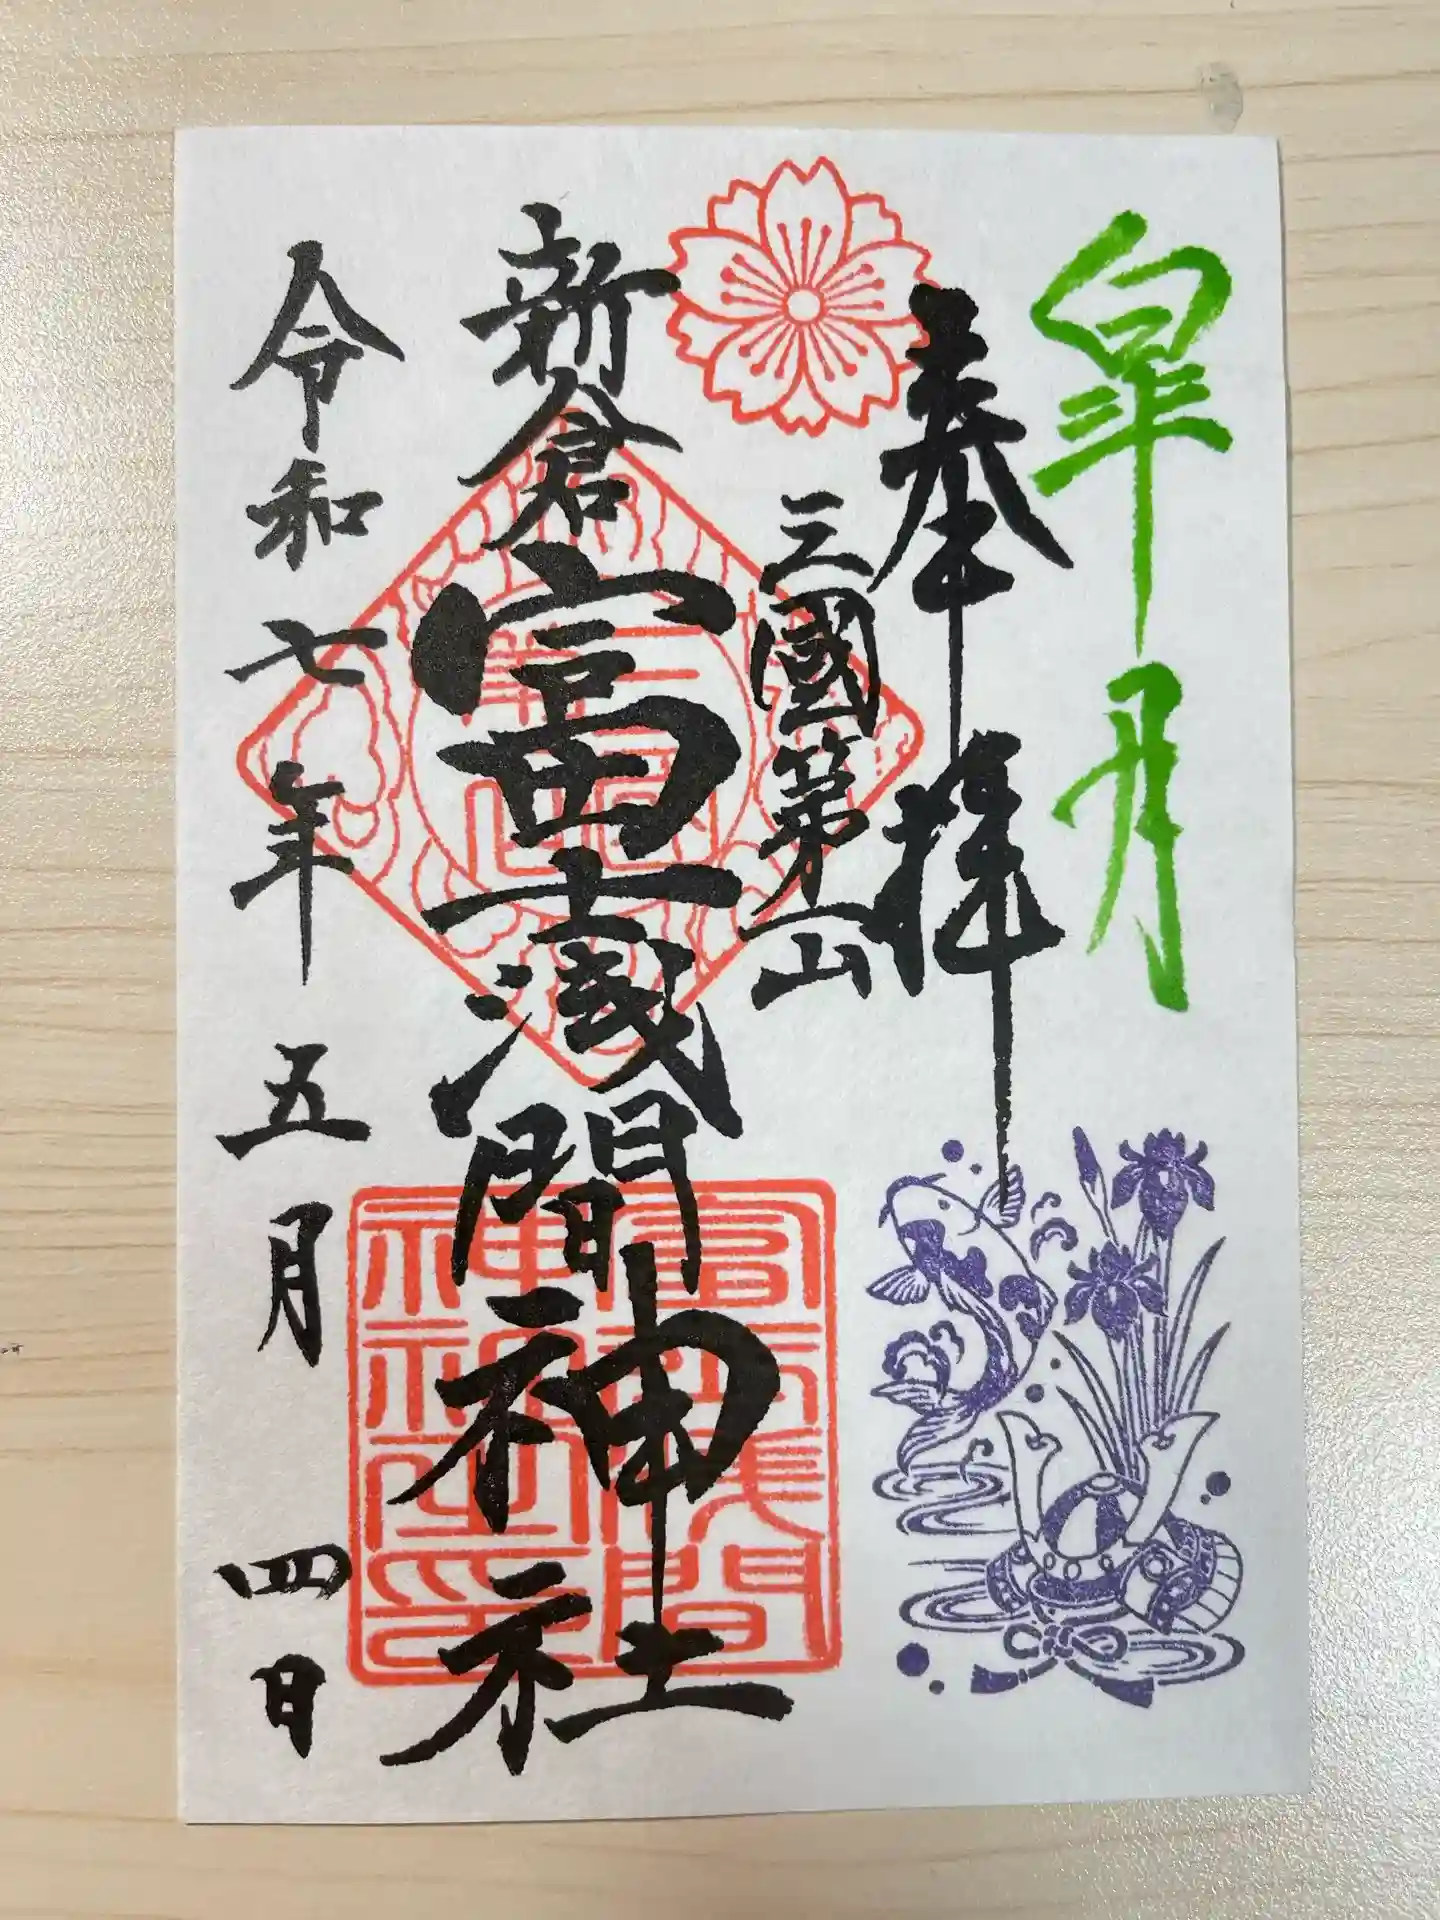 皐月
奉拝
三國第一山
新倉富士浅間神社
令和七年五月四日
富士浅間
神社之印